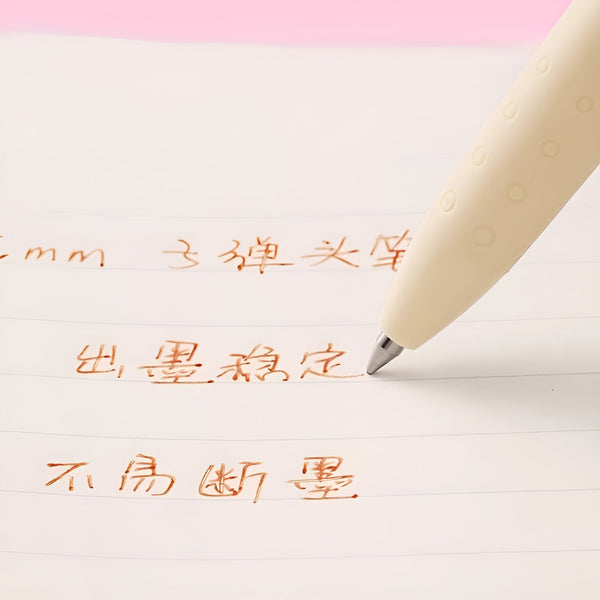 mm 子弹头笔
出墨稳定
不易断墨